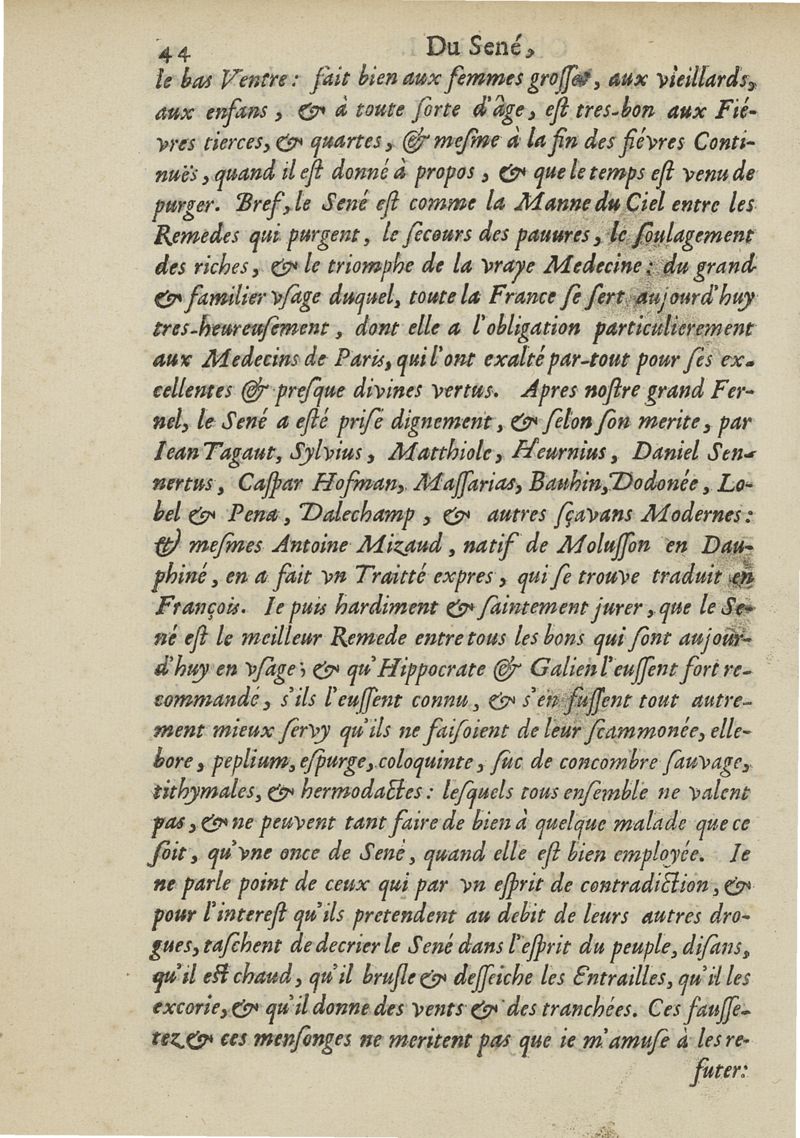 44 Du Sené,
le bas Ventre: fait bien aux femmes grosses, aux vieillards,
aux enfans, & à toute sorte d'âge, est tres-bon aux Fié-
vres tierces, & quartes, & mesme à la fin des fiévres Conti-
nuës, quand il est donné à propos, & que le temps est venu de
purger. Bref, le Sené est comme la Manne du Ciel entre les
Remedes qui purgent, le secours des pauures, le soulagement
des riches, & le triomphe de la vraye Medecine: du grand
& familier vsage duquel, toute la France se sert aujourd'huy
tres-heureusement, dont elle a l'obligation particulierement
aux Medecins de Paris, qui l'ont exalté par-tout pour ses ex-
cellentes & presque divines vertus. Apres nostre grand Fer-
nel, le Sené a esté prisé dignement, & selon son merite, par
Iean Tagaut, Sylvius, Matthiole, Heurnius, Daniel Sen-
nertus, Caspar Hofman, Massarias, Bauhin, Dodonée, Lo-
bel & Pena, Dalechamp, & autres sçavans Modernes:
& mesmes Antoine Mizaud, natif de Molusson en Dau-
phiné, en a fait vn Traitté expres, qui se trouve traduit en
François. Ie puis hardiment & saintement jurer, que le Se-
né est le meilleur Remede entre tous les bons qui sont aujour-
d'huy en vsage; & qu'Hippocrate & Galien l'eussent fort re-
commandé, s'ils l'eussent connu, & s'en fussent tout autre-
ment mieux servy qu'ils ne faisoient de leur scammonée, elle-
bore, peplium, espurge, coloquinte, suc de concombre sauvage,
tithymales, & hermodactes: lesquels tous ensemble ne valent
pas, & ne peuvent tant faire de bien à quelque malade que ce
soit, qu'vne once de Sené, quand elle est bien employée. Ie
ne parle point de ceux qui par vn esprit de contradiction, &
pour l'interest qu'ils pretendent au debit de leurs autres dro-
gues, taschent de decrier le Sené dans l'esprit du peuple, disans,
qu'il est chaud, qu'il brusle & desseiche les Entrailles, qu'il les
excorie, & qu'il donne des vents & des tranchées. Ces fausse-
tez & ces mensonges ne meritent pas que ie m'amuse à les re-
futer: